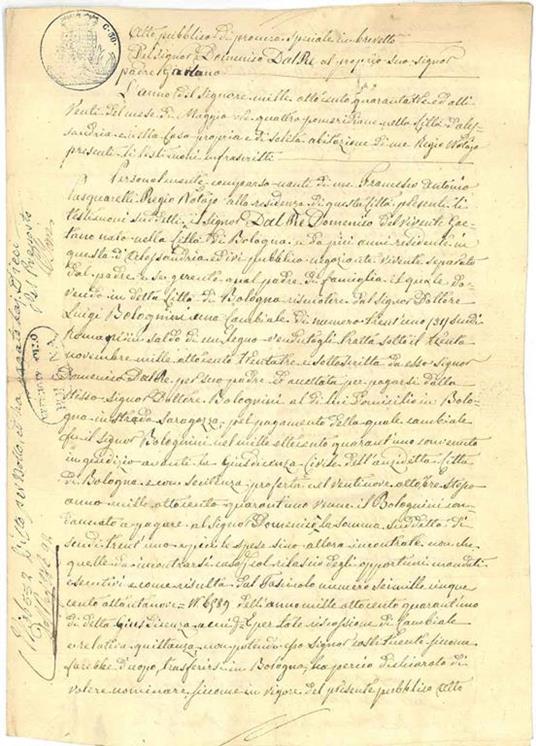 C. 50.
Atto pubblico di procura speciale in brevetto
Del Signor Domenico Dal Re al proprio suo Signor
padre Gaetano
L'anno del Signore mille ottocento quarantatre ed alli
Venti del mese di Maggio ore quattro pomeridiane nella Città d'Ales-
sandria e nella Casa propria e di solita abitazione di me Regio Notajo
presenti li testimoni infrascritti
Personalmente comparso nanti di me Francesco Antonio
Pasquarelli Regio Notajo alla residenza di questa Città presenti li
testimoni suddetti il Signor Dal Re Domenico del vivente Gae-
tano nato nella Città di Bologna e da più anni residente in
questa d'Alessandria ed ivi pubblico negoziante vivente separato
dal padre e gerente qual padre di famiglia il quale do-
vendo in detta Città di Bologna riscuotere dal Signor Dottore
Luigi Bolognini una Cambiale di numero trent'uno (31) Scudi
Romani in saldo di un legno vendutogli tratta sotto il trenta
novembre mille ottocento trentatre e sottoscritta da esso Signor
Domenico Dal Re per suo padre ed accettata per pagarsi dallo
stesso Signor Dottore Bolognini al di lui domicilio in Bolo-
gna in strada Saragozza, pel pagamento della quale cambiale
fu il Signor Bolognini nel mille ottocento quarant'uno convenuto
in giudizio avanti la Giusdicenza Civile dell'anzidetta Città
di Bologna e con sentenza proferta nel ventinove ottobre stesso
anno mille ottocento quarantuno venne il Bolognini con-
dannato a pagare al Signor Domenico la somma suddetta di
scudi trent'uno e più le spese sino allora incontrate non che
quelle da incontrarsi col rilascio degli opportuni mandati
esecutivi e come risulta dal Fascicolo numero sei mille cinque
cento ottantanove = N. 6589 dell'anno mille ottocento quarantuno
di detta Giusdicenza e per tale riscossione di Cambiale
e relativa quittanza non potendo esso Signor costituente siccome
sarebbe d'uopo, trasferirsi in Bologna, ha perciò dichiarato di
volere nominare siccome in vigore del presente pubblico atto